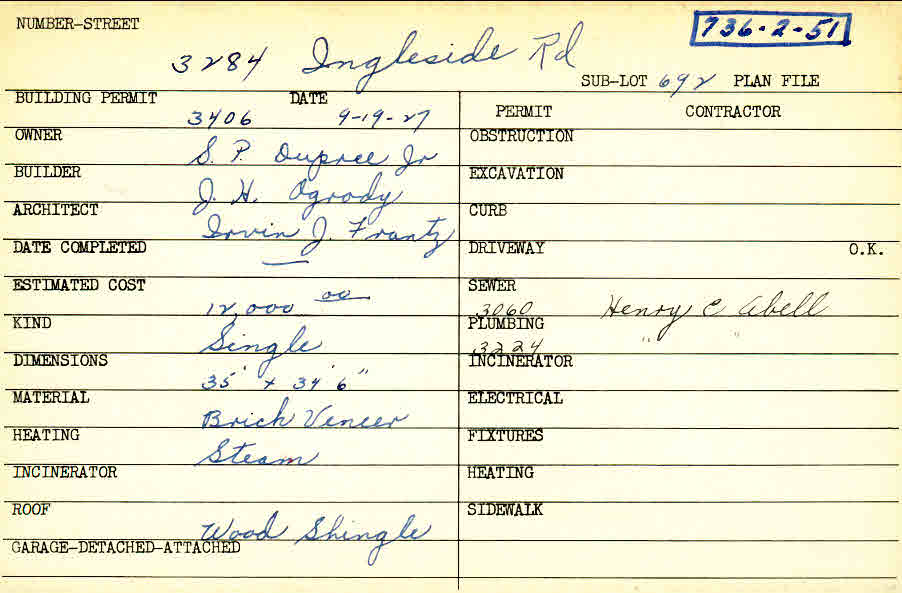 NUMBER-STREET
736-2-51
3284 Ingleside Rd
SUB-LOT 692 PLAN FILE
BUILDING PERMIT DATE
3406 9-19-27
OWNER
S. P. Dupree Jr
BUILDER
J. H. Ogrody
ARCHITECT
Irvin J. Frantz
DATE COMPLETED
—
ESTIMATED COST
12,000 00
KIND
Single
DIMENSIONS
35' x 34' 6"
MATERIAL
Brick Veneer
HEATING
Steam
INCINERATOR
ROOF
Wood Shingle
GARAGE-DETACHED-ATTACHED
PERMIT CONTRACTOR
OBSTRUCTION
EXCAVATION
CURB
DRIVEWAY O.K.
SEWER
3060 Henry C Abell
PLUMBING
3224 " "
INCINERATOR
ELECTRICAL
FIXTURES
HEATING
SIDEWALK